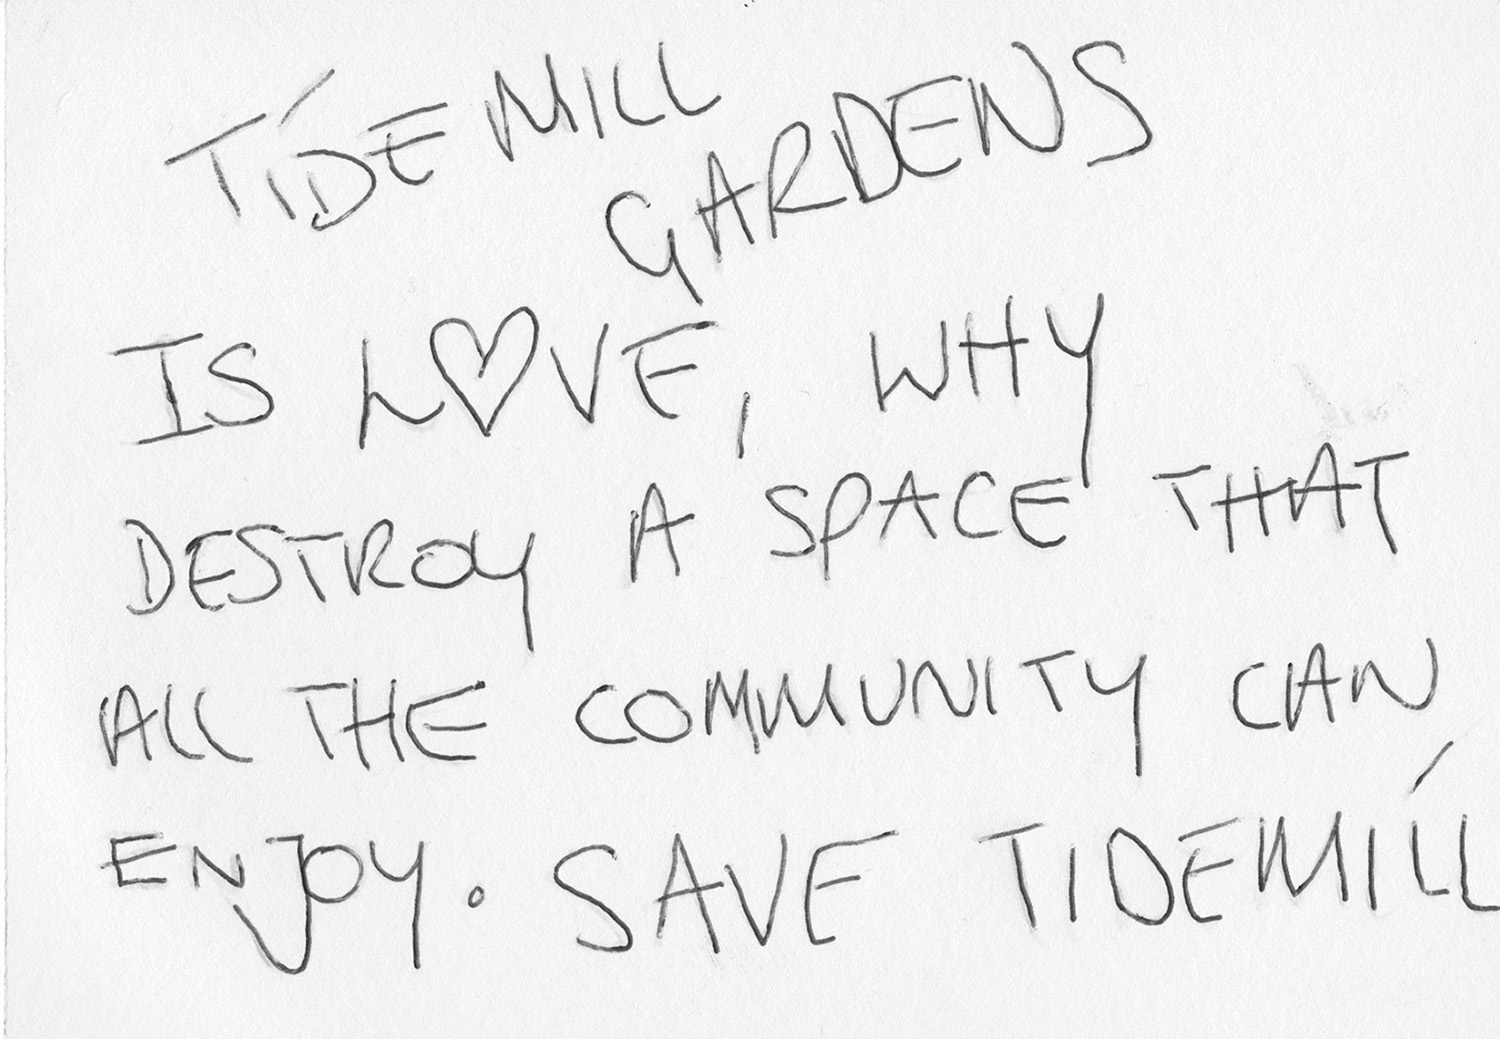 TIDE MILL
GARDENS
IS L♡VE, WHY
DESTROY A SPACE THAT
ALL THE COMMUNITY CAN
ENJOY. SAVE TIDEMILL